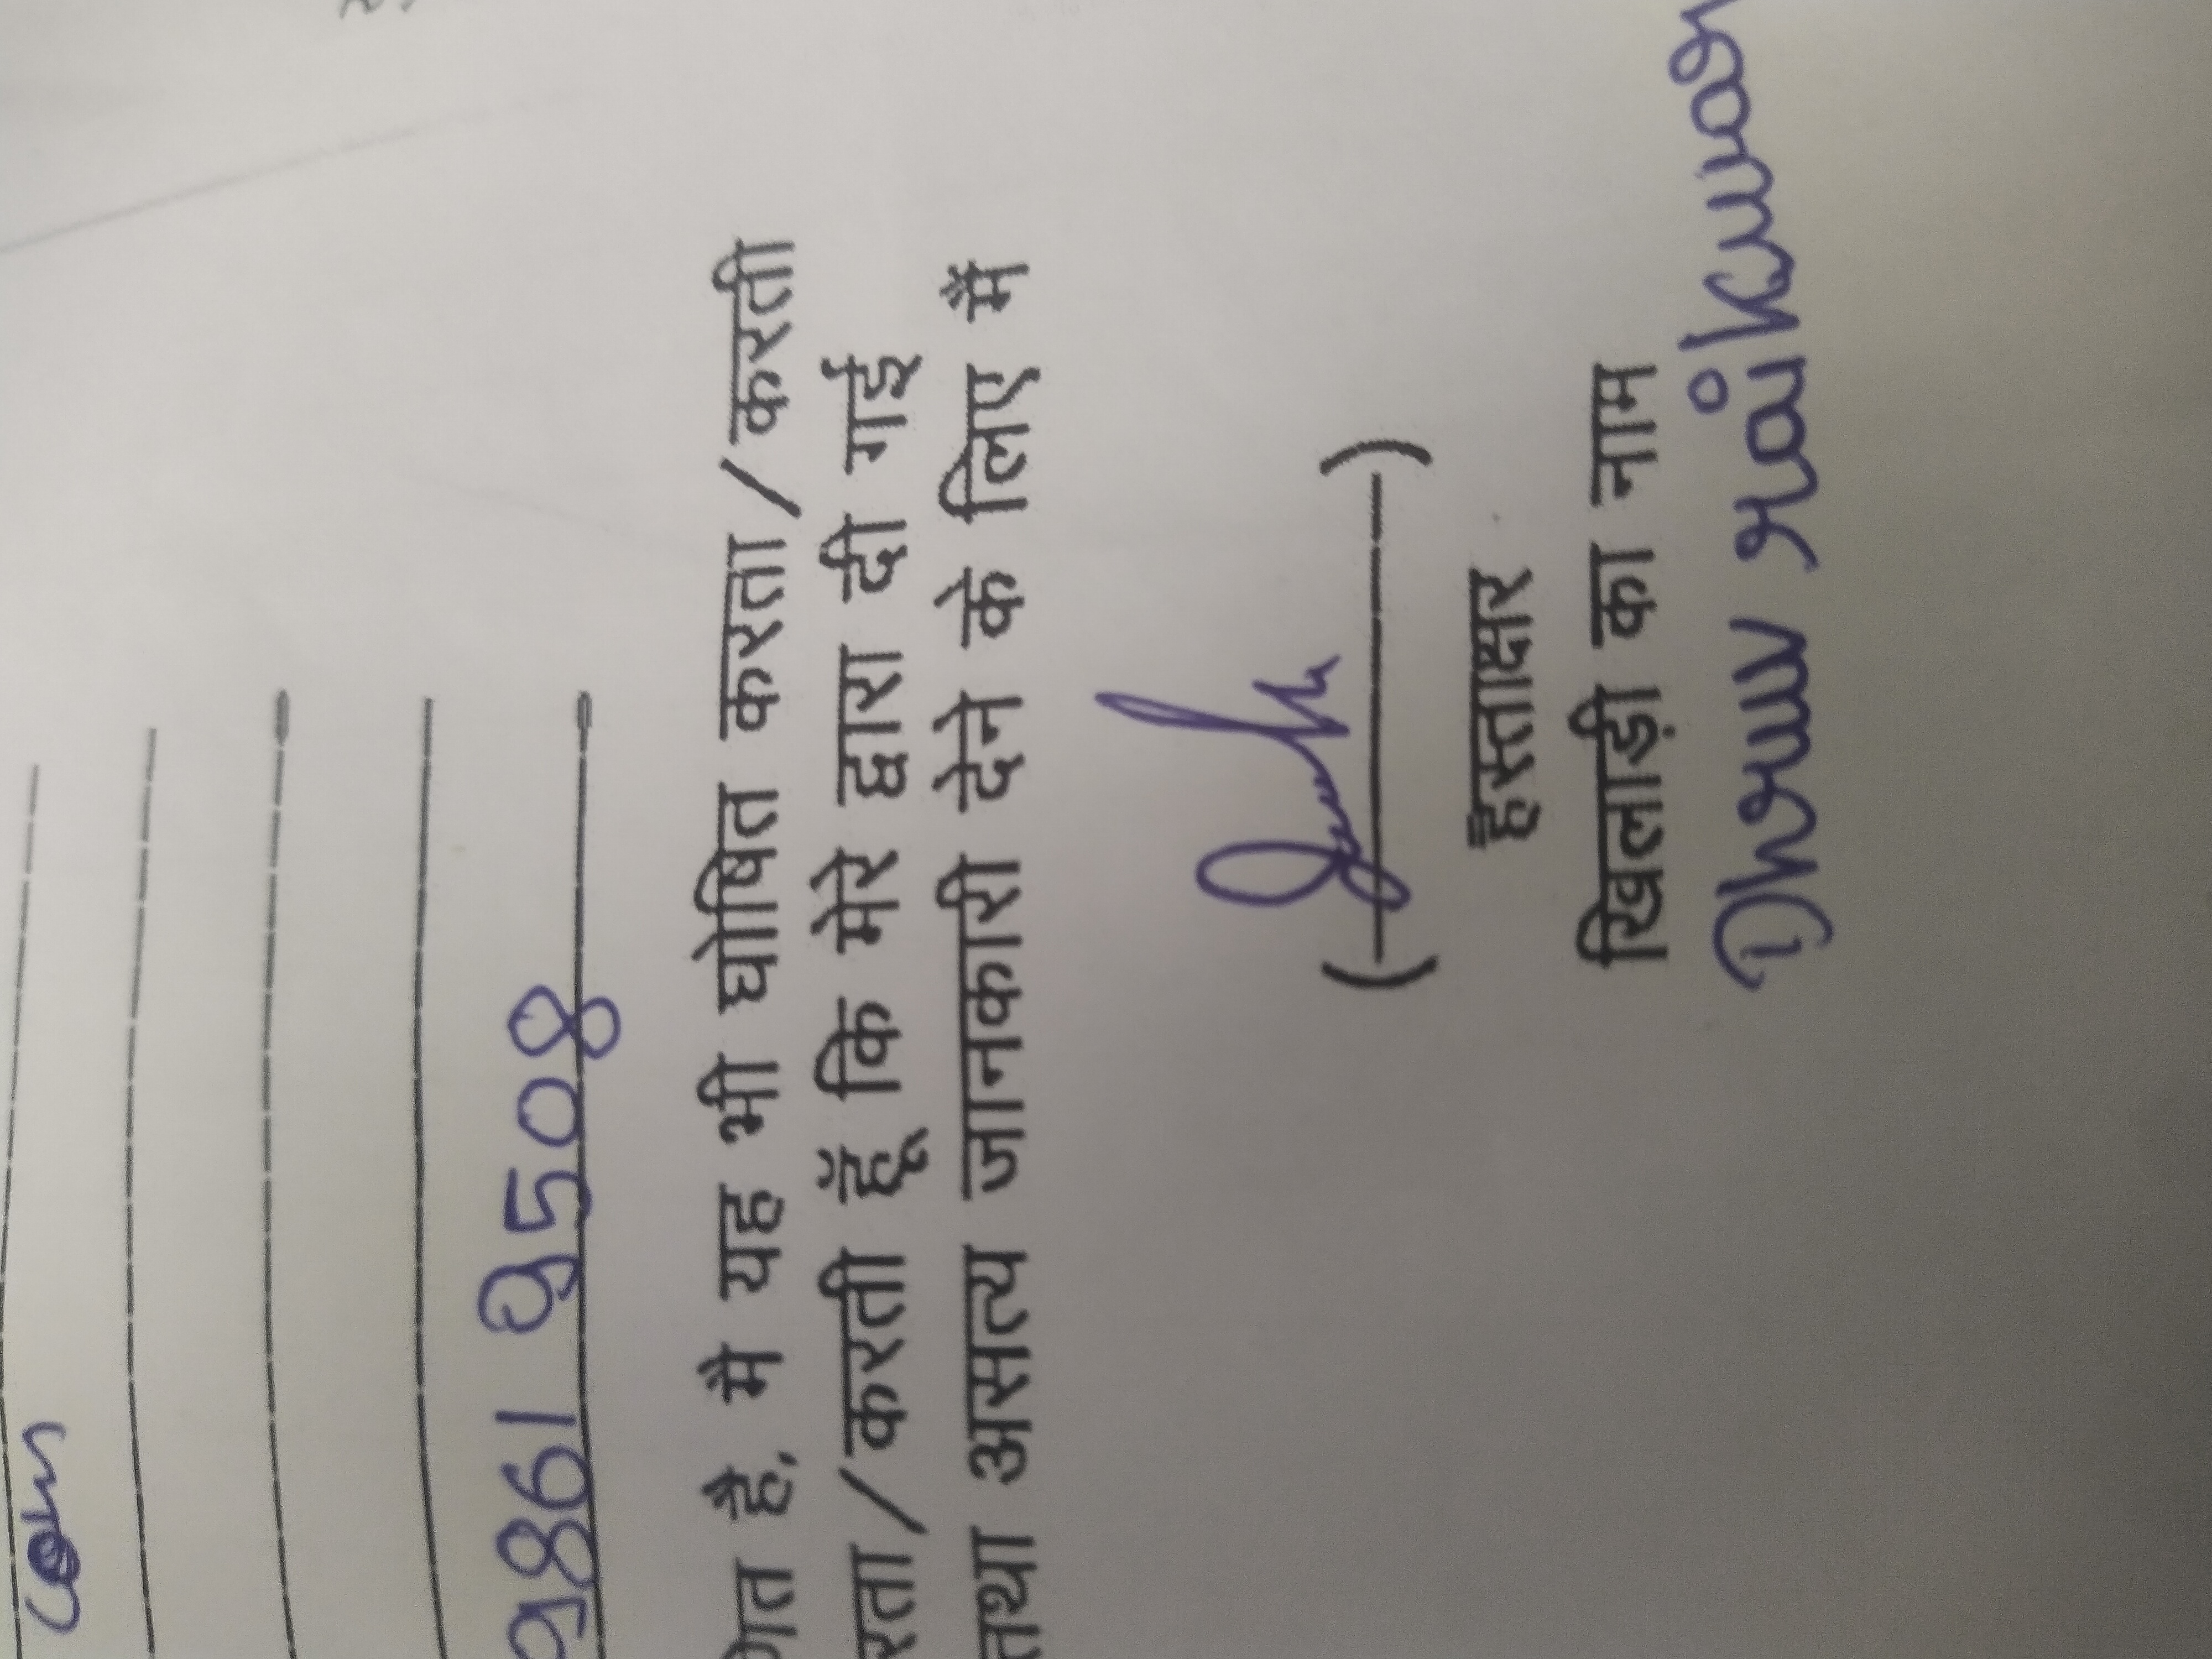 com
9861 9508
णित है, मै यह भी घोषित करता/करती
रता/करती हूँ कि मेरे द्वारा दी गई
तथा असत्य जानकारी देने के लिए मैं
(————)
हस्ताक्षर
खिलाड़ी का नाम
Dhruv rajkumar